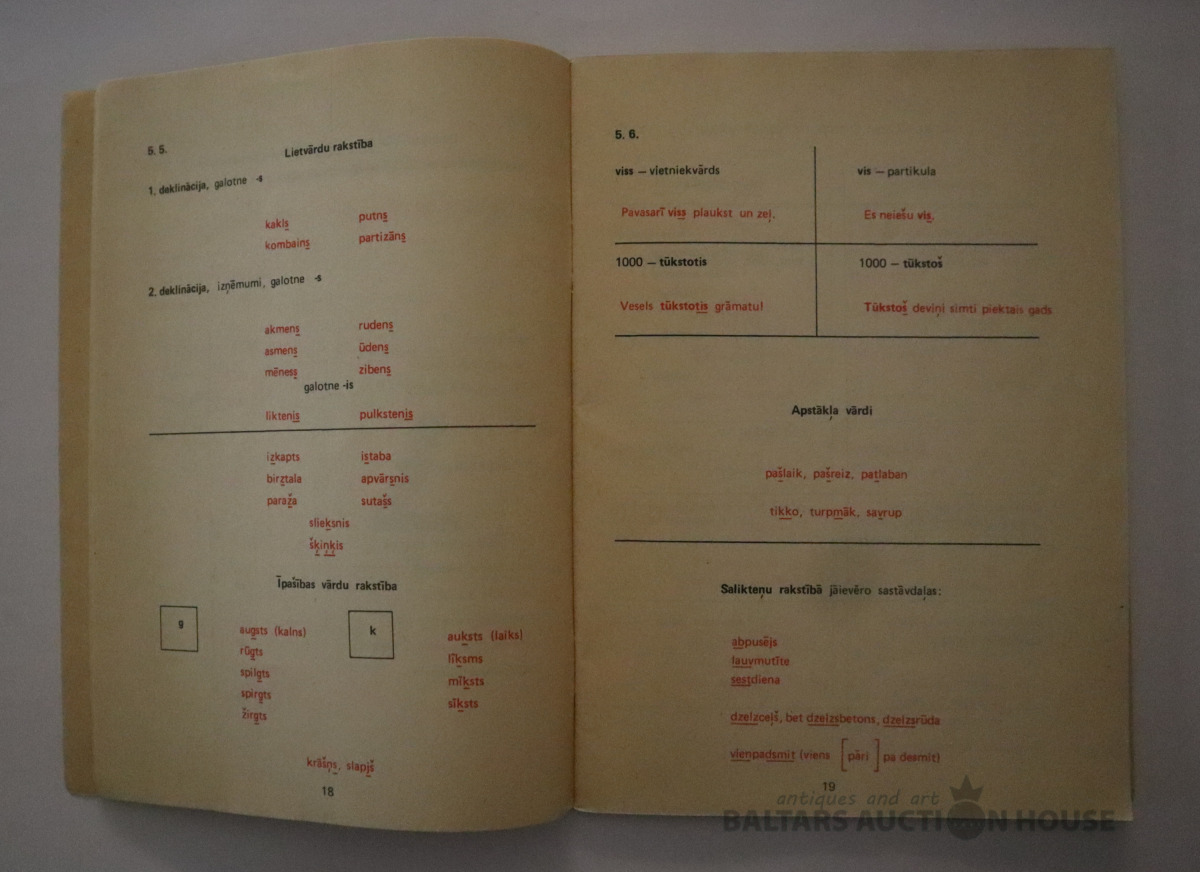 5. 5.
Lietvārdu rakstība
1. deklinācija, galotne -s
kakls putns
kombains partizāns
2. deklinācija, izņēmumi, galotne -s
akmens rudens
asmens ūdens
mēness zibens
galotne -is
liktenis pulkstenis
izkapts istaba
birztala apvārsnis
paraža sutašs
slieksnis
šķiņķis
Īpašības vārdu rakstība
g k
augsts (kalns) auksts (laiks)
rūgts līksms
spilgts mīksts
spirgts sīksts
žirgts
krāšņs, slapjš
18
5. 6.
viss — vietniekvārds vis — partikula
Pavasarī viss plaukst un zeļ. Es neiešu vis.
1000 — tūkstotis 1000 — tūkstoš
Vesels tūkstotis grāmatu! Tūkstoš deviņi simti piektais gads
Apstākļa vārdi
pašlaik, pašreiz, patlaban
tikko, turpmāk, savrup
Salikteņu rakstībā jāievēro sastāvdaļas:
abpusējs
ļauvmutīte
sestdiena
dzelzceļš, bet dzelzsbetons, dzelzsrūda
vienpadsmit (viens [pāri] pa desmit)
19
antiques and art
BALTARS AUCTION HOUSE